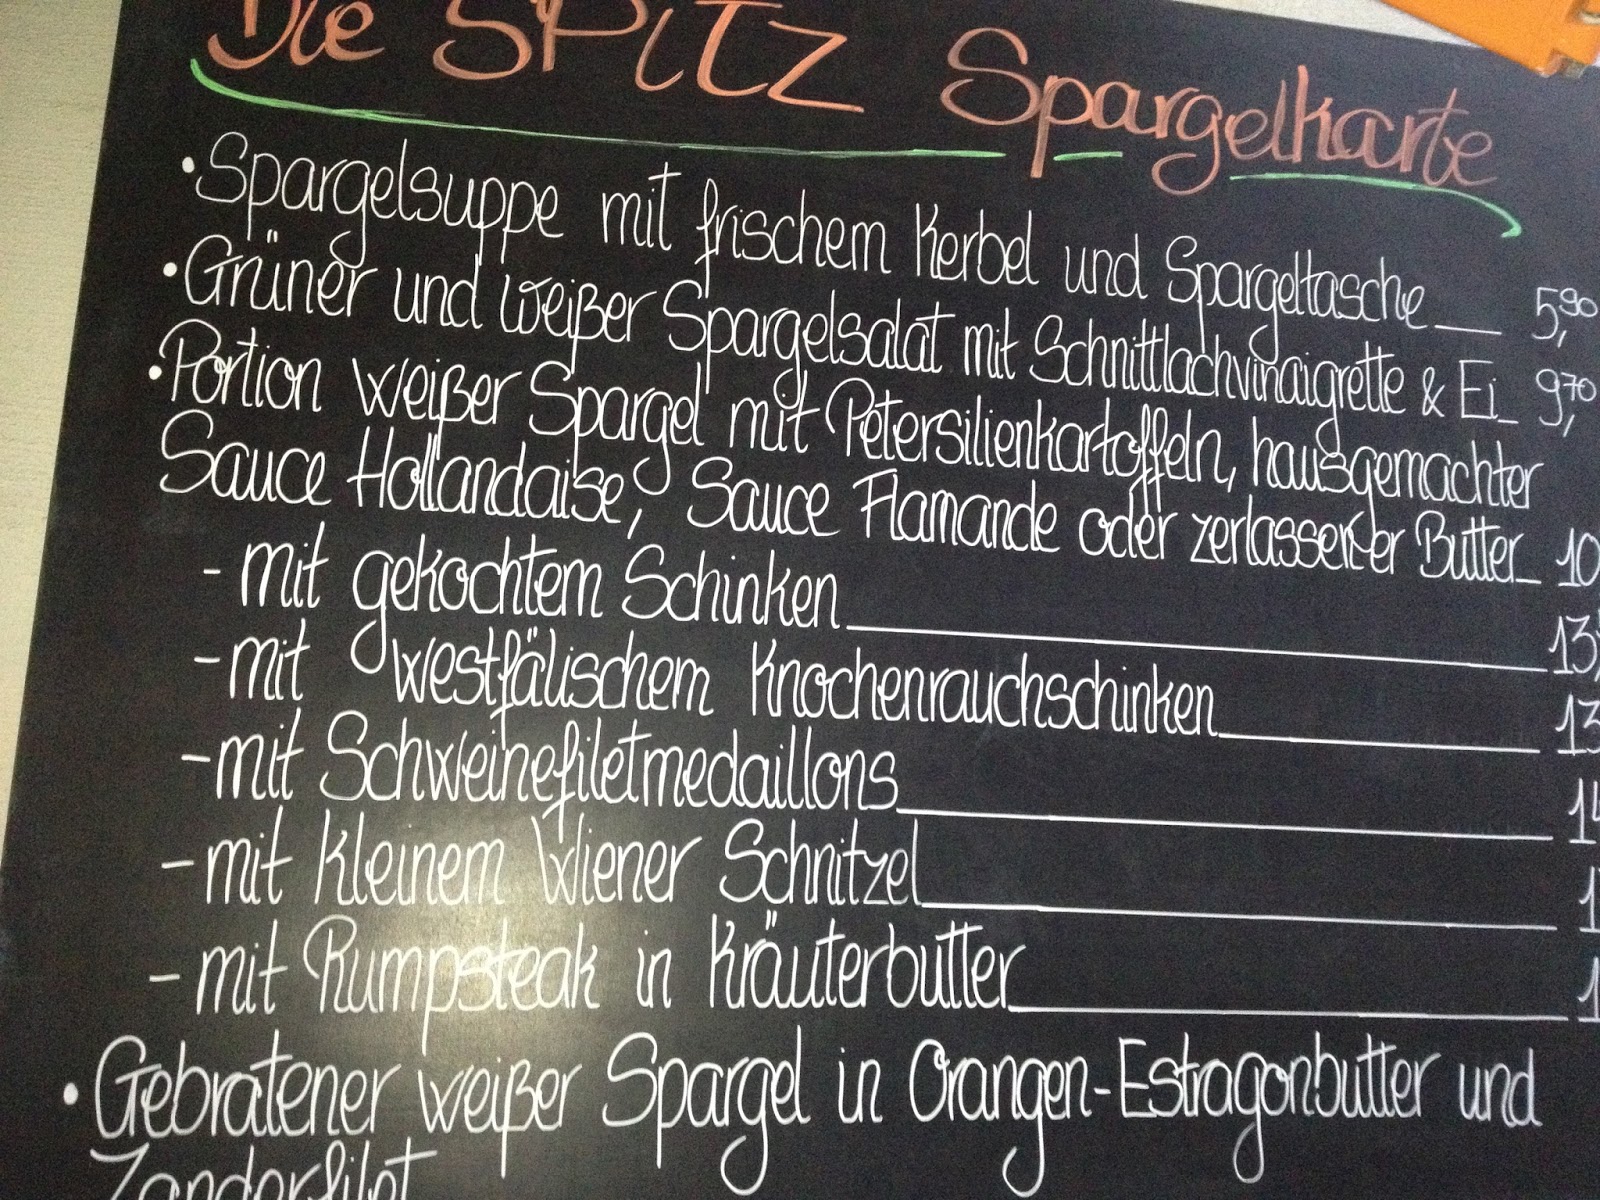 Die SPITZ Spargelkarte
• Spargelsuppe mit frischem Kerbel und Spargeltasche 5,90
• Grüner und weißer Spargelsalat mit Schnittlachvinaigrette & Ei 9,70
• Portion weißer Spargel mit Petersilienkartoffeln, hausgemachter
Sauce Hollandaise, Sauce Flamande oder zerlassener Butter 10
- mit gekochtem Schinken 13,
- mit westfälischem Knochenrauchschinken 13
- mit Schweinefiletmedaillons 14
- mit kleinem Wiener Schnitzel 1
- mit Rumpsteak in Kräuterbutter 1
• Gebratener weißer Spargel in Orangen-Estragonbutter und
Zanderfilet